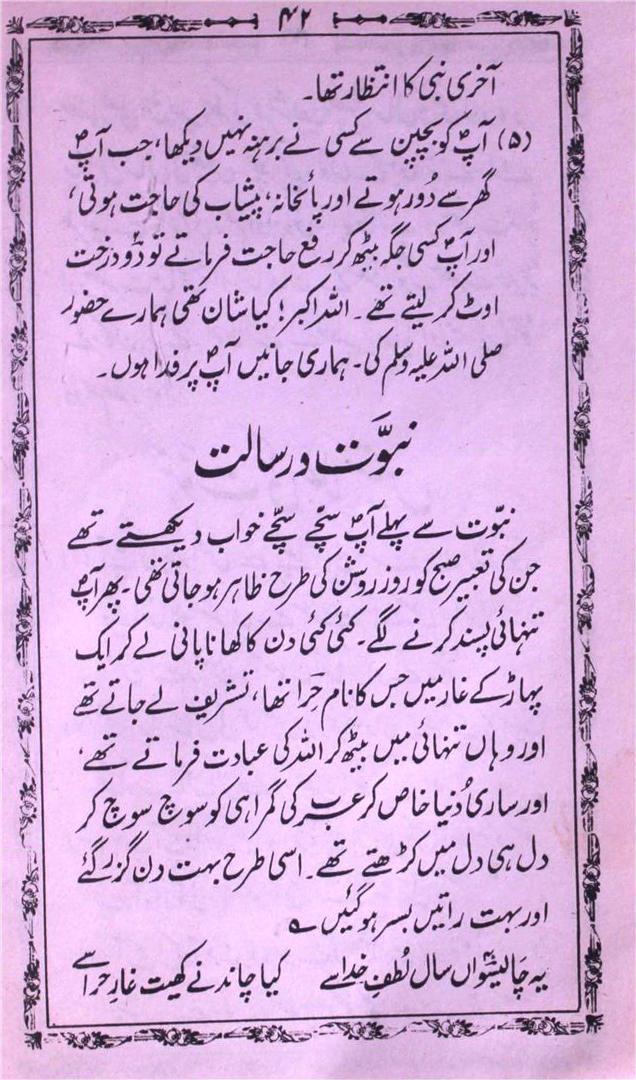 ۴۲
آخری نبی کا انتظار تھا۔
(۵) آپؐ کو بچپن سے کسی نے برہنہ نہیں دیکھا، جب آپؐ
گھر سے دُور ہوتے اور پائخانہ، پیشاب کی حاجت ہوتی،
اور آپؐ کسی جگہ بیٹھ کر رفع حاجت فرماتے تو دُو درخت
اوٹ کر لیتے تھے۔ اللہ اکبر! کیا شان تھی ہمارے حضور
صلی اللہ علیہ وسلم کی۔ ہماری جانیں آپؐ پر فدا ہوں۔
نبوَّت و رسالت
نبوّت سے پہلے آپؐ سچّے سچّے خواب دیکھتے تھے
جن کی تعبیر صبح کو روز روشن کی طرح ظاہر ہو جاتی تھی۔ پھر آپؐ
تنہائی پسند کرنے لگے۔ کئی کئی دن کا کھانا پانی لے کر ایک
پہاڑ کے غار میں جس کا نام حِرا تھا، تشریف لے جاتے تھے
اور وہاں تنہائی میں بیٹھ کر اللہ کی عبادت فرماتے تھے،
اور ساری دُنیا خاص کر عرب کی گمراہی کو سوچ سوچ کر
دل ہی دل میں کڑھتے تھے۔ اسی طرح بہت دن گزر گئے
اور بہت راتیں بسر ہو گئیں ؎
یہ چالیسواں سال لُطفِ خدا سے کیا چاند نے کھیت غارِ حرا سے